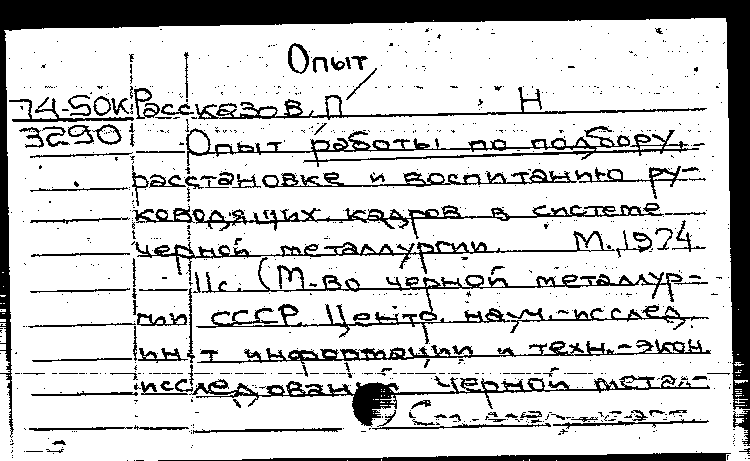 Опыт
74-50К Рассказов, П Н
3290 Опыт работы по подбору,
расстановке и воспитанию ру-
ководящих кадров в системе
черной металлургии. М., 1974
11с. (М-во черной металлур-
гии СССР. Центр. науч.-исслед.
ин-т информации и техн.-экон.
исследований черной метал-
См. след. карт.